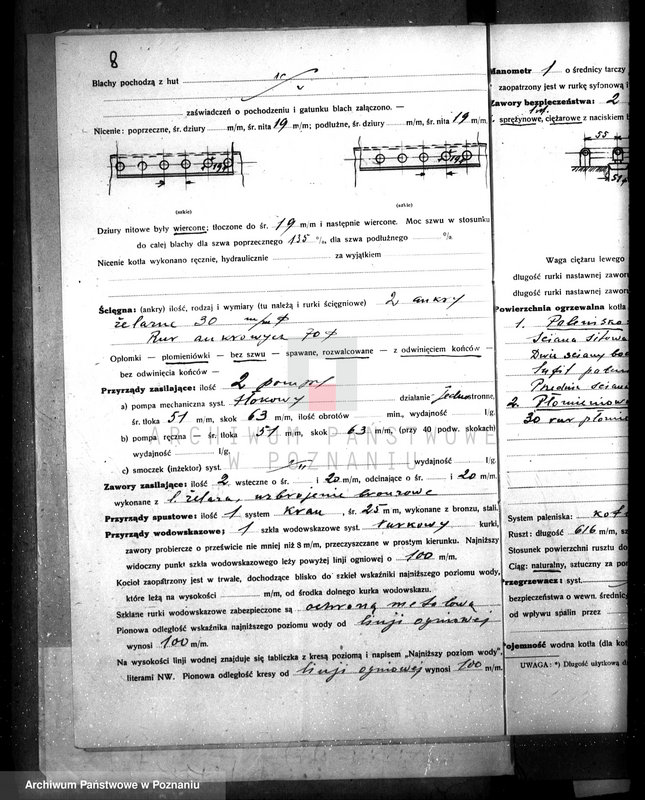 8
Blachy pochodzą z hut
zaświadczeń o pochodzeniu i gatunku blach załączono. —
Nicenie: poprzeczne, śr. dziury m/m, śr. nita 19 m/m; podłużne, śr. dziury m/m, śr. nita 19 m/m.
(szkic) (szkic)
Dziury nitowe były wiercone; tłoczone do śr. 19 m/m i następnie wiercone. Moc szwu w stosunku
do całej blachy dla szwa poprzecznego 135 %, dla szwa podłużnego %.
Nicenie kotła wykonano ręcznie, hydraulicznie za wyjątkiem
Ścięgna: (ankry) ilość, rodzaj i wymiary (tu należą i rurki ścięgniowe) 2 ankry
żelazne 30 m/m ϕ
Rur ankrowych 70 ϕ
Opłomki — płomieniówki — bez szwu — spawane, rozwalcowane — z odwinięciem końców —
bez odwinięcia końców —
Przyrządy zasilające: ilość 2 pompy
a) pompa mechaniczna syst. tłokowy działanie Jednostronne,
śr. tłoka 51 m/m, skok 63 m/m, ilość obrotów min., wydajność l/g.
b) pompa ręczna śr. tłoka 51 m/m, skok 63 m/m, (przy 40 podw. skokach)
wydajność l/g.
c) smoczek (inżektor) syst. wydajność l/g.
Zawory zasilające: ilość 2 wsteczne o śr. 20 m/m, odcinające o śr. 20 m/m.
wykonane z l. żelaza, uzbrojenie bronzowe
Przyrządy spustowe: ilość 1 system kran, śr. 25 m/m, wykonane z bronzu, stali.
Przyrządy wodowskazowe: 1 szkła wodowskazowe syst. rurkowy kurki,
zawory probiercze o prześwicie nie mniej niż 8 m/m, przeczyszczane w prostym kierunku. Najniższy
widoczny punkt szkła wodowskazowego leży powyżej linji ogniowej o 100 m/m.
Kocioł zaopatrzony jest w trwałe, dochodzące blisko do szkieł wskaźniki najniższego poziomu wody,
które leżą na wysokości m/m, od środka dolnego kurka wodowskazu.
Szklane rurki wodowskazowe zabezpieczone są ochroną metalową
Pionowa odległość wskaźnika najniższego poziomu wody od linji ogniowej
wynosi 100 m/m.
Na wysokości linji wodnej znajduje się tabliczka z kresą poziomą i napisem „Najniższy poziom wody",
literami NW. Pionowa odległość kresy od linji ogniowej wynosi 100 m/m.
Manometr 1 o średnicy tarczy
zaopatrzony jest w rurkę syfonową i
Zawory bezpieczeństwa: 2
sprężynowe, ciężarowe z naciskiem
55
Waga ciężaru lewego
długość rurki nastawnej zaworu
długość rurki nastawnej zaworu
Powierzchnia ogrzewalna kotła
1.
Ściana sitowa
Dwie ściany
Sufit
Przednia ściana
2.
30 rur
System paleniska:
Ruszt: długość 616 m/m, sz
Stosunek powierzchni rusztu do
Ciąg: naturalny, sztuczny za po
Przegrzewacz: syst.
bezpieczeństwa o wewn. średnicy
od wpływu spalin przez
Pojemność wodna kotła (dla kot
UWAGA: *) Długość użytkową d
ARCHIWUM PAŃSTWOWE
W POZNANIU
Archiwum Państwowe w Poznaniu